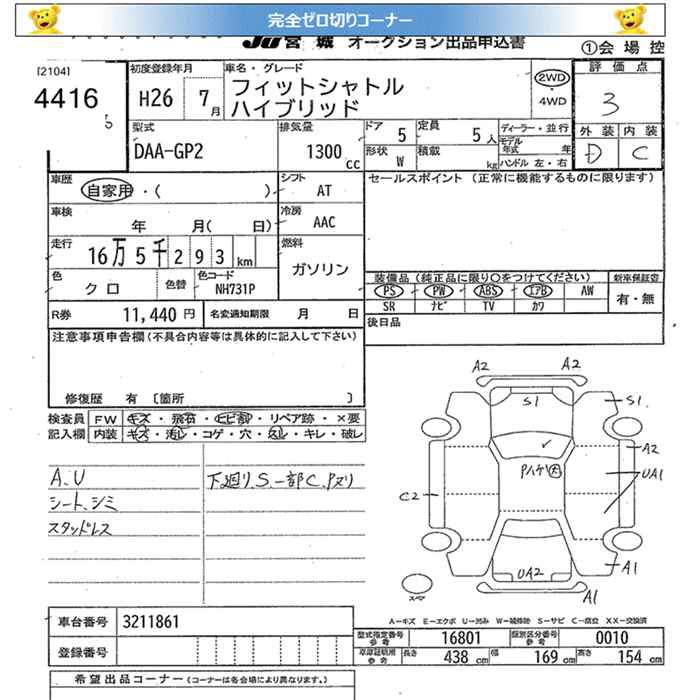 完全ゼロ切りコーナー
JU宮城 オークション出品申込書
①会場控
[2104]
4416
初度登録年月
H26 7月
車名・グレード
フィットシャトル
ハイブリッド
2WD
・
4WD
評価点
3
外装 内装
D C
型式
DAA-GP2
排気量
1300cc
ドア 5
定員 5人
形状 W
積載 kg
ディーラー・並行
モデル年式 年
ハンドル 左・右
車歴
自家用・( )
シフト
AT
セールスポイント (正常に機能するものに限ります)
車検
年 月( 日)
冷房
AAC
走行
16万5千293km
燃料
ガソリン
色
クロ
色替
色コード
NH731P
装備品 (純正品に限り〇をつけてください)
PS PW ABS エアB AW
SR ナビ TV カワ
新車保証書
有・無
R券 11,440円
名変通知期限 月 日
後日品
注意事項申告欄 (不具合内容等は具体的に記入して下さい)
修復歴 有 〔箇所 〕
検査員 FW キズ・飛石・ヒビ割・リペア跡・×要
記入欄 内装 キズ・汚レ・コゲ・穴・スレ・キレ・破レ
A.U
シート、シミ
スタッドレス
下廻りS.一部C.Pヌリ
A2 A2
S1 S1
A2
PハゲD
UA1
C2
UA2
A1
A1
スペア
A―キズ E―エクボ U―凹み W―補修跡 S―サビ C―腐立 XX―交換済
車台番号 3211861
登録番号
型式指定番号 参考 16801
類別区分番号 参考 0010
車庫証明用 参考 長さ 438cm 幅 169cm 高さ 154cm
希望出品コーナー (コーナーは各会場により異なります。)